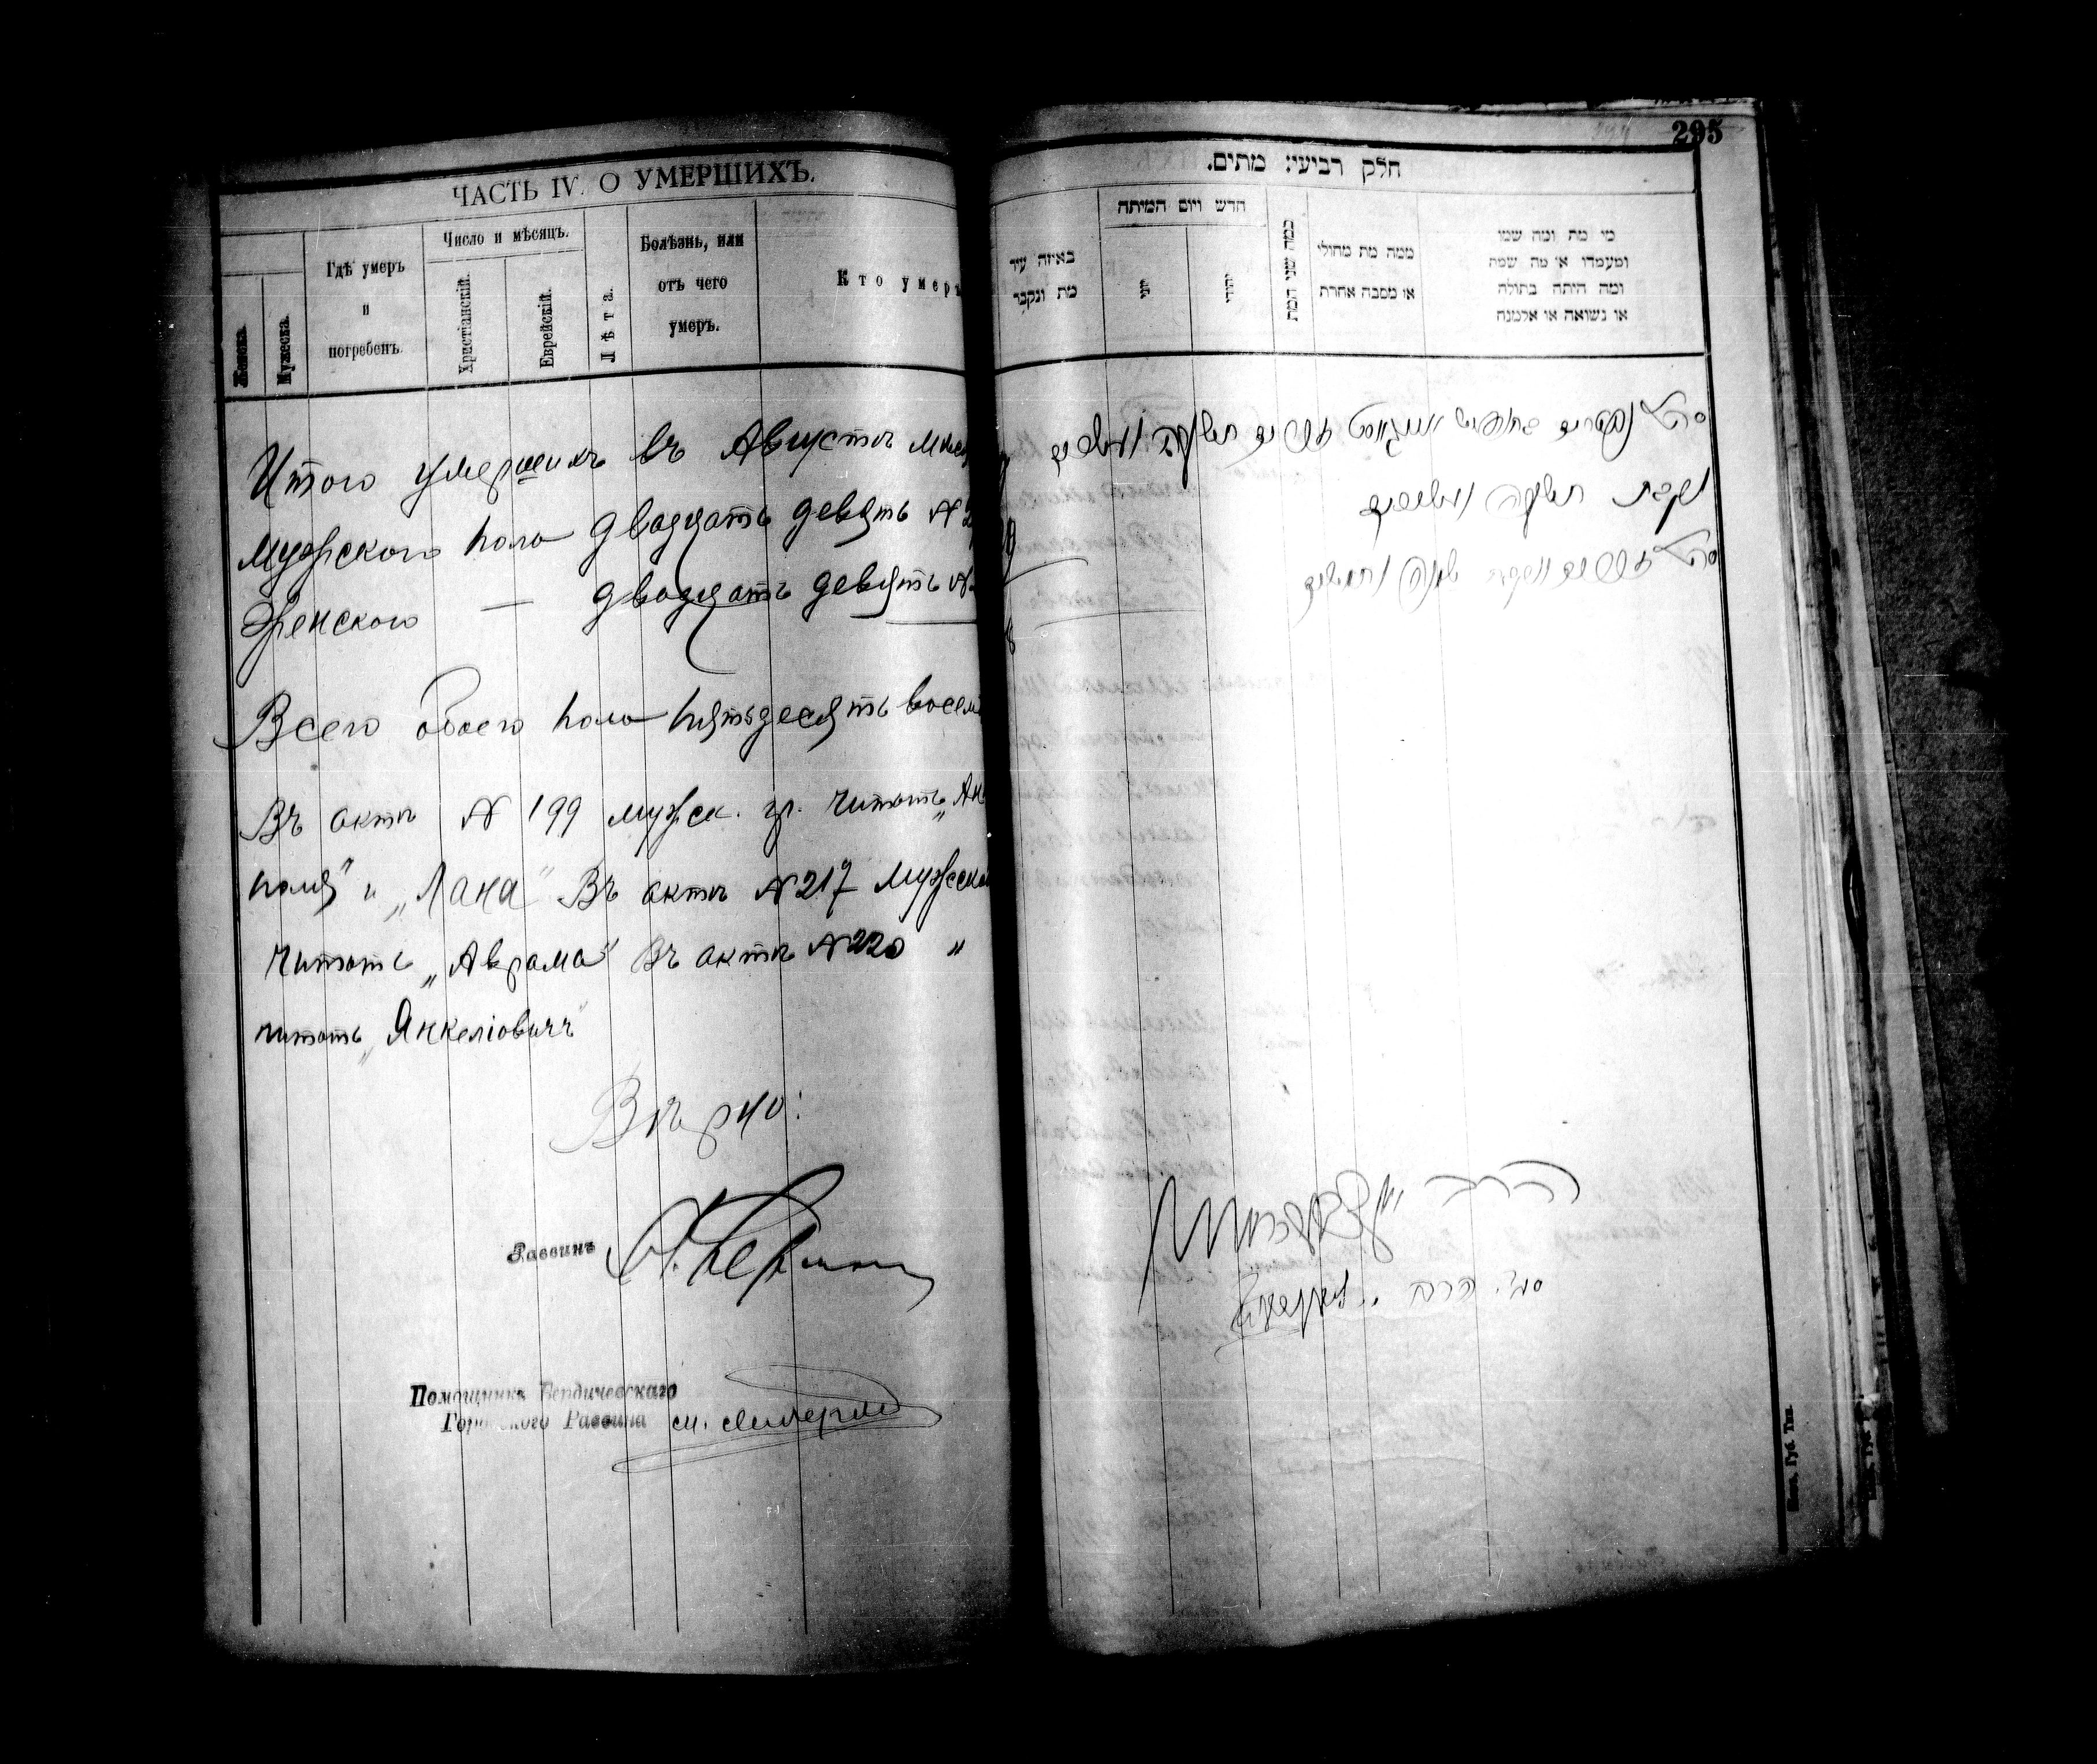 ЧАСТЬ IV. О УМЕРШИХЪ.
Женска.
Мужеска.
Гдѣ умеръ
и
погребенъ.
Число и мѣсяцъ.
Христіанскій.
Еврейскій.
Лѣта.
Болѣзнь, или
отъ чего
умеръ.
Кто умеръ
Итого умершихъ въ Августѣ
мужского пола двадцать девять №
женского — двадцать девять №
Всего обоего пола пятьдесятъ восемь
Въ актѣ № 199 мужск. гр. читать
и „Лана" Въ актѣ № 217
читать „Аврама" Въ актѣ № 220 "
читать „Янкеліовичъ"
Вѣрно:
Раввинъ
Помощникъ Бердичевскаго
Городского Раввина
295
חלק רביעי: מתים.
מי מת ומה שמו
ומעמדו או מה שמה
ומה היתה בתולה
או נשואה או אלמנה
ממה מת מחולי
או מסבה אחרת
כמה שני המת
חדש ויום המיתה
יהודי
באיזה עיר
מת ונקבר
ס״ה נפטרים בחודש אויגוסט זכרים תשעה ועשרים
נקבות תשעה ועשרים
ס״ה זכרים ונקבות שמנה וחמשים
הרב
סג׳ הרב